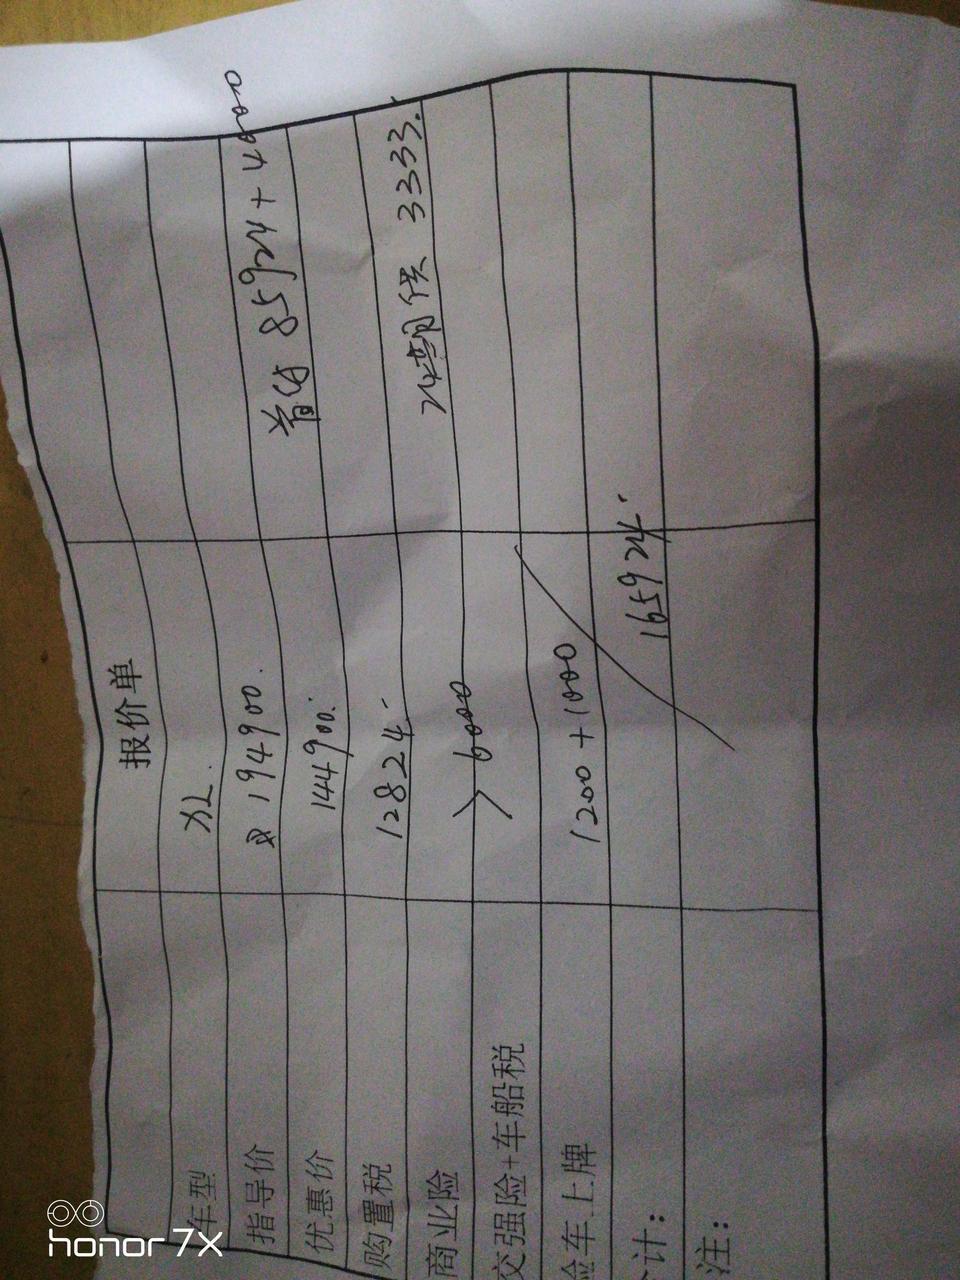 报价单
车型 XL.
指导价 194900.
优惠价 144900.
购置税 12824.-
商业险
交强险+车船税 > 6000
验车上牌 1200 + 1000
计: 165924.-
注:
首付 85924 + 4000
24期月供 3333.
honor 7X